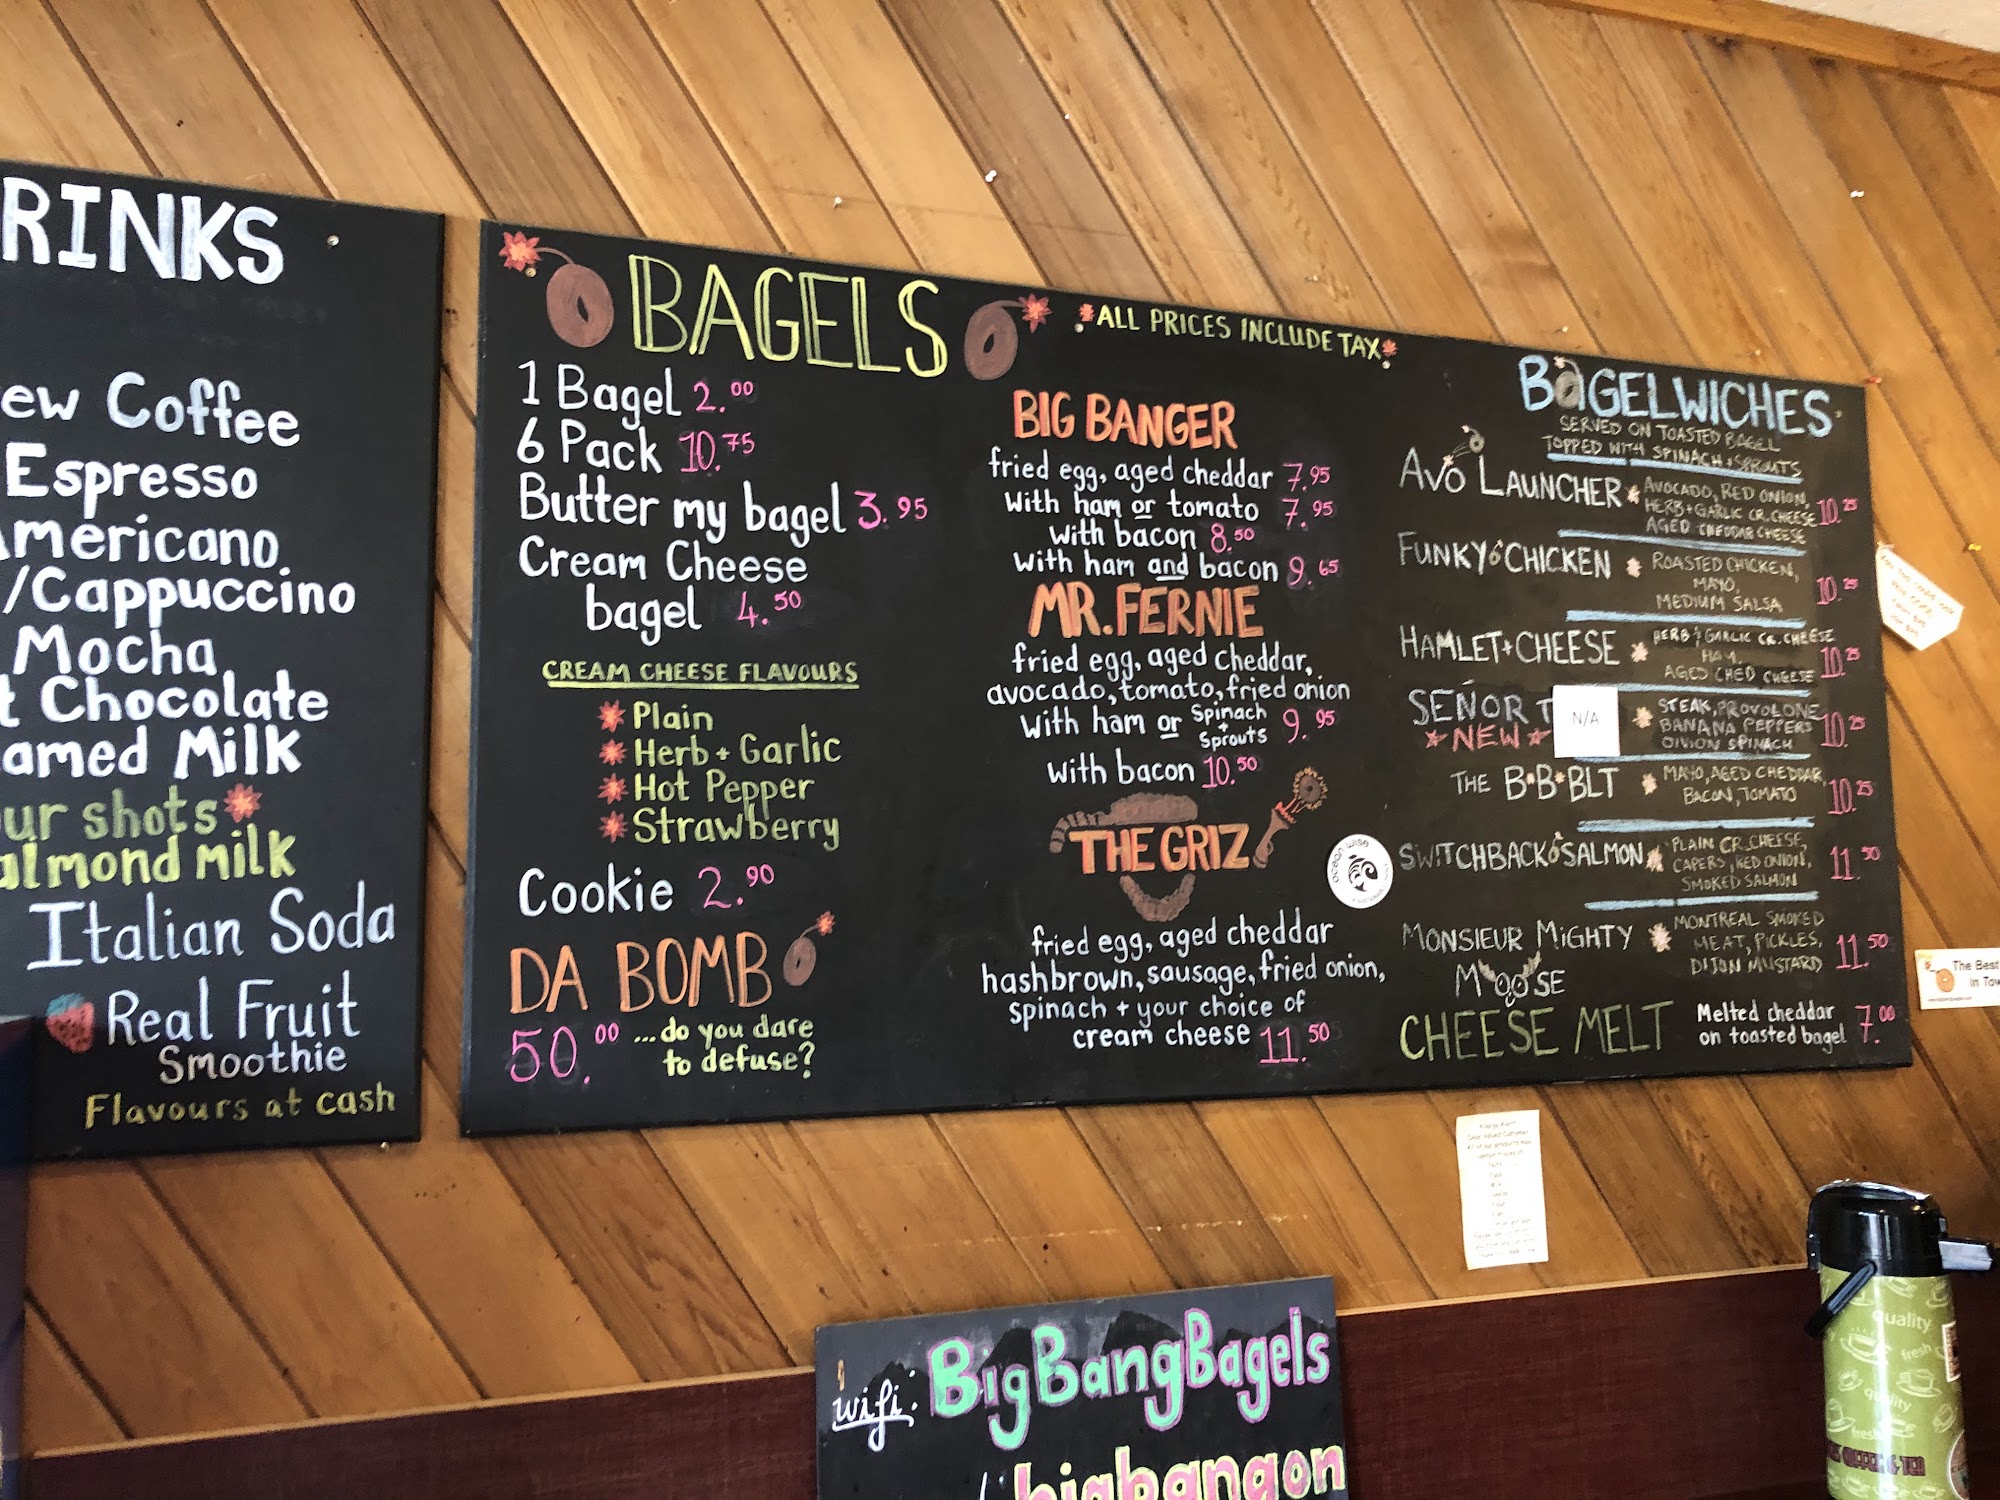 RINKS
ew Coffee
Espresso
Americano
/Cappuccino
Mocha
t Chocolate
amed Milk
our shots
almond milk
Italian Soda
Real Fruit
Smoothie
Flavours at cash
BAGELS
*ALL PRICES INCLUDE TAX*
1 Bagel 2.00
6 Pack 10.75
Butter my bagel 3.95
Cream Cheese
bagel 4.50
CREAM CHEESE FLAVOURS
Plain
Herb + Garlic
Hot Pepper
Strawberry
Cookie 2.90
DA BOMB
50.00 ...do you dare
to defuse?
BIG BANGER
fried egg, aged cheddar 7.95
with ham or tomato 7.95
with bacon 8.50
with ham and bacon 9.65
MR. FERNIE
fried egg, aged cheddar,
avocado, tomato, fried onion
with ham or Spinach + Sprouts 9.95
with bacon 10.50
THE GRIZ
fried egg, aged cheddar
hashbrown, sausage, fried onion,
spinach + your choice of
cream cheese 11.50
ocean wise
BAGELWICHES
SERVED ON TOASTED BAGEL
TOPPED WITH SPINACH + SPROUTS
AVO LAUNCHER AVOCADO, RED ONION,
HERB + GARLIC CR. CHEESE 10.25
AGED CHEDDAR CHEESE
FUNKY CHICKEN ROASTED CHICKEN,
MAYO, 10.25
MEDIUM SALSA
HAMLET + CHEESE HERB & GARLIC CR. CHEESE
HAM, 10.25
AGED CHED CHEESE
SEÑOR T N/A STEAK, PROVOLONE
*NEW* BANANA PEPPERS 10.25
ONION SPINACH
THE B•B•BLT MAYO, AGED CHEDDAR,
BACON, TOMATO 10.25
SWITCHBACK SALMON PLAIN CR. CHEESE,
CAPERS, RED ONION, 11.50
SMOKED SALMON
MONSIEUR MIGHTY MONTREAL SMOKED
MOOSE MEAT, PICKLES, 11.50
DIJON MUSTARD
CHEESE MELT Melted cheddar
on toasted bagel 7.00
The Best
In Tow
wifi: BigBangBagels
bigbangon
Quality
fresh
quality
fresh